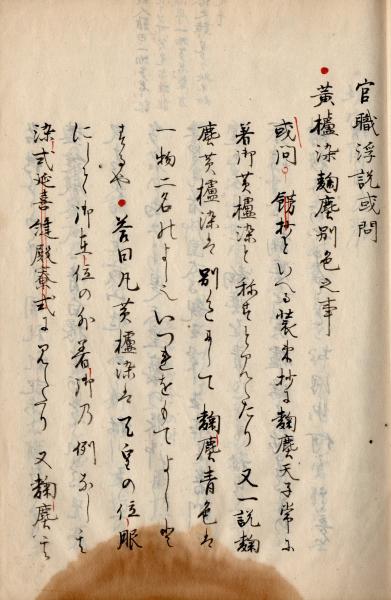 官職浮説或問
黄櫨染麹塵別色之事
或問飾抄といへる装束抄に麹塵天子常に
着御黄櫨染と称すと見えたり又一説麹
塵黄櫨染は別色にして麹塵青色は
一物二名のよしいつれをもてよしと
すへきや答曰凡黄櫨染は天皇の位服
にして御在位の外着御乃例なし其
染式延喜縫殿寮式に見えたり又麹塵は